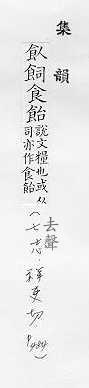 集韻
飤飼食飴
說文糧也或从
司亦作食飴
去聲
(七志.祥吏切